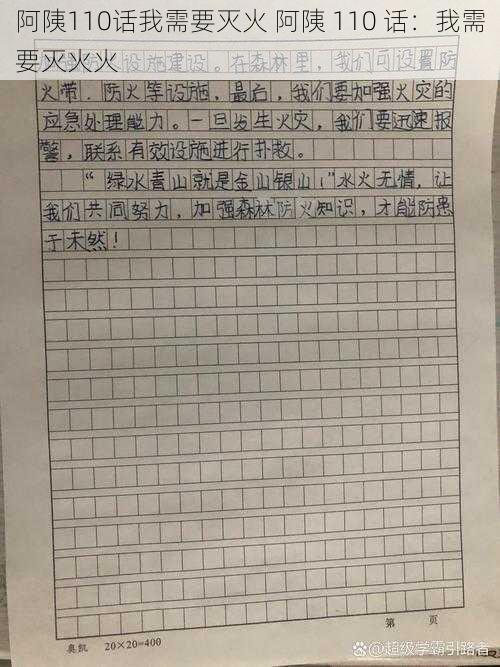 阿陹110话我需要灭火 阿陹 110 话：我需
要灭火火
设施建设。在森林里，我们可设置防
火带、防火等设施，最后，我们要加强火灾的
应急处理能力。一旦发生火灾，我们要迅速报
警，联系有效设施进行扑救。
“绿水青山就是金山银山！”水火无情，让
我们共同努力，加强森林防火知识，才能防患
于未然！
第 页
奥凯 20×20=400
@超级学霸引路者